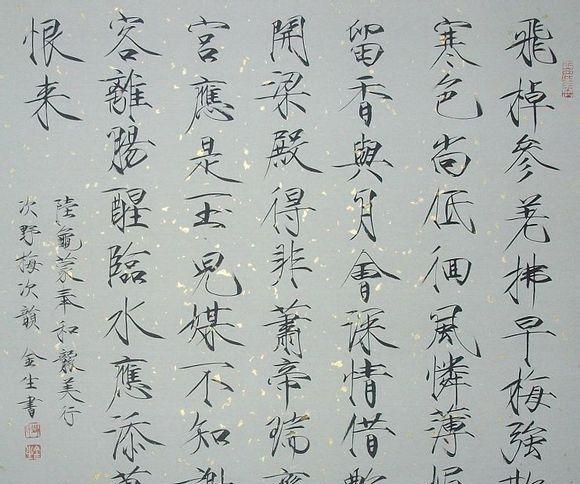 飛棹參差拂早梅強
寒色尚低徊風憐薄
留香與月會深情借
開梁殿得非蕭帝瑞
宮應是玉兒媒不知
客離腸醒臨水應添
恨来
陸龜蒙奉和襲美行
次野梅次韻 金生書